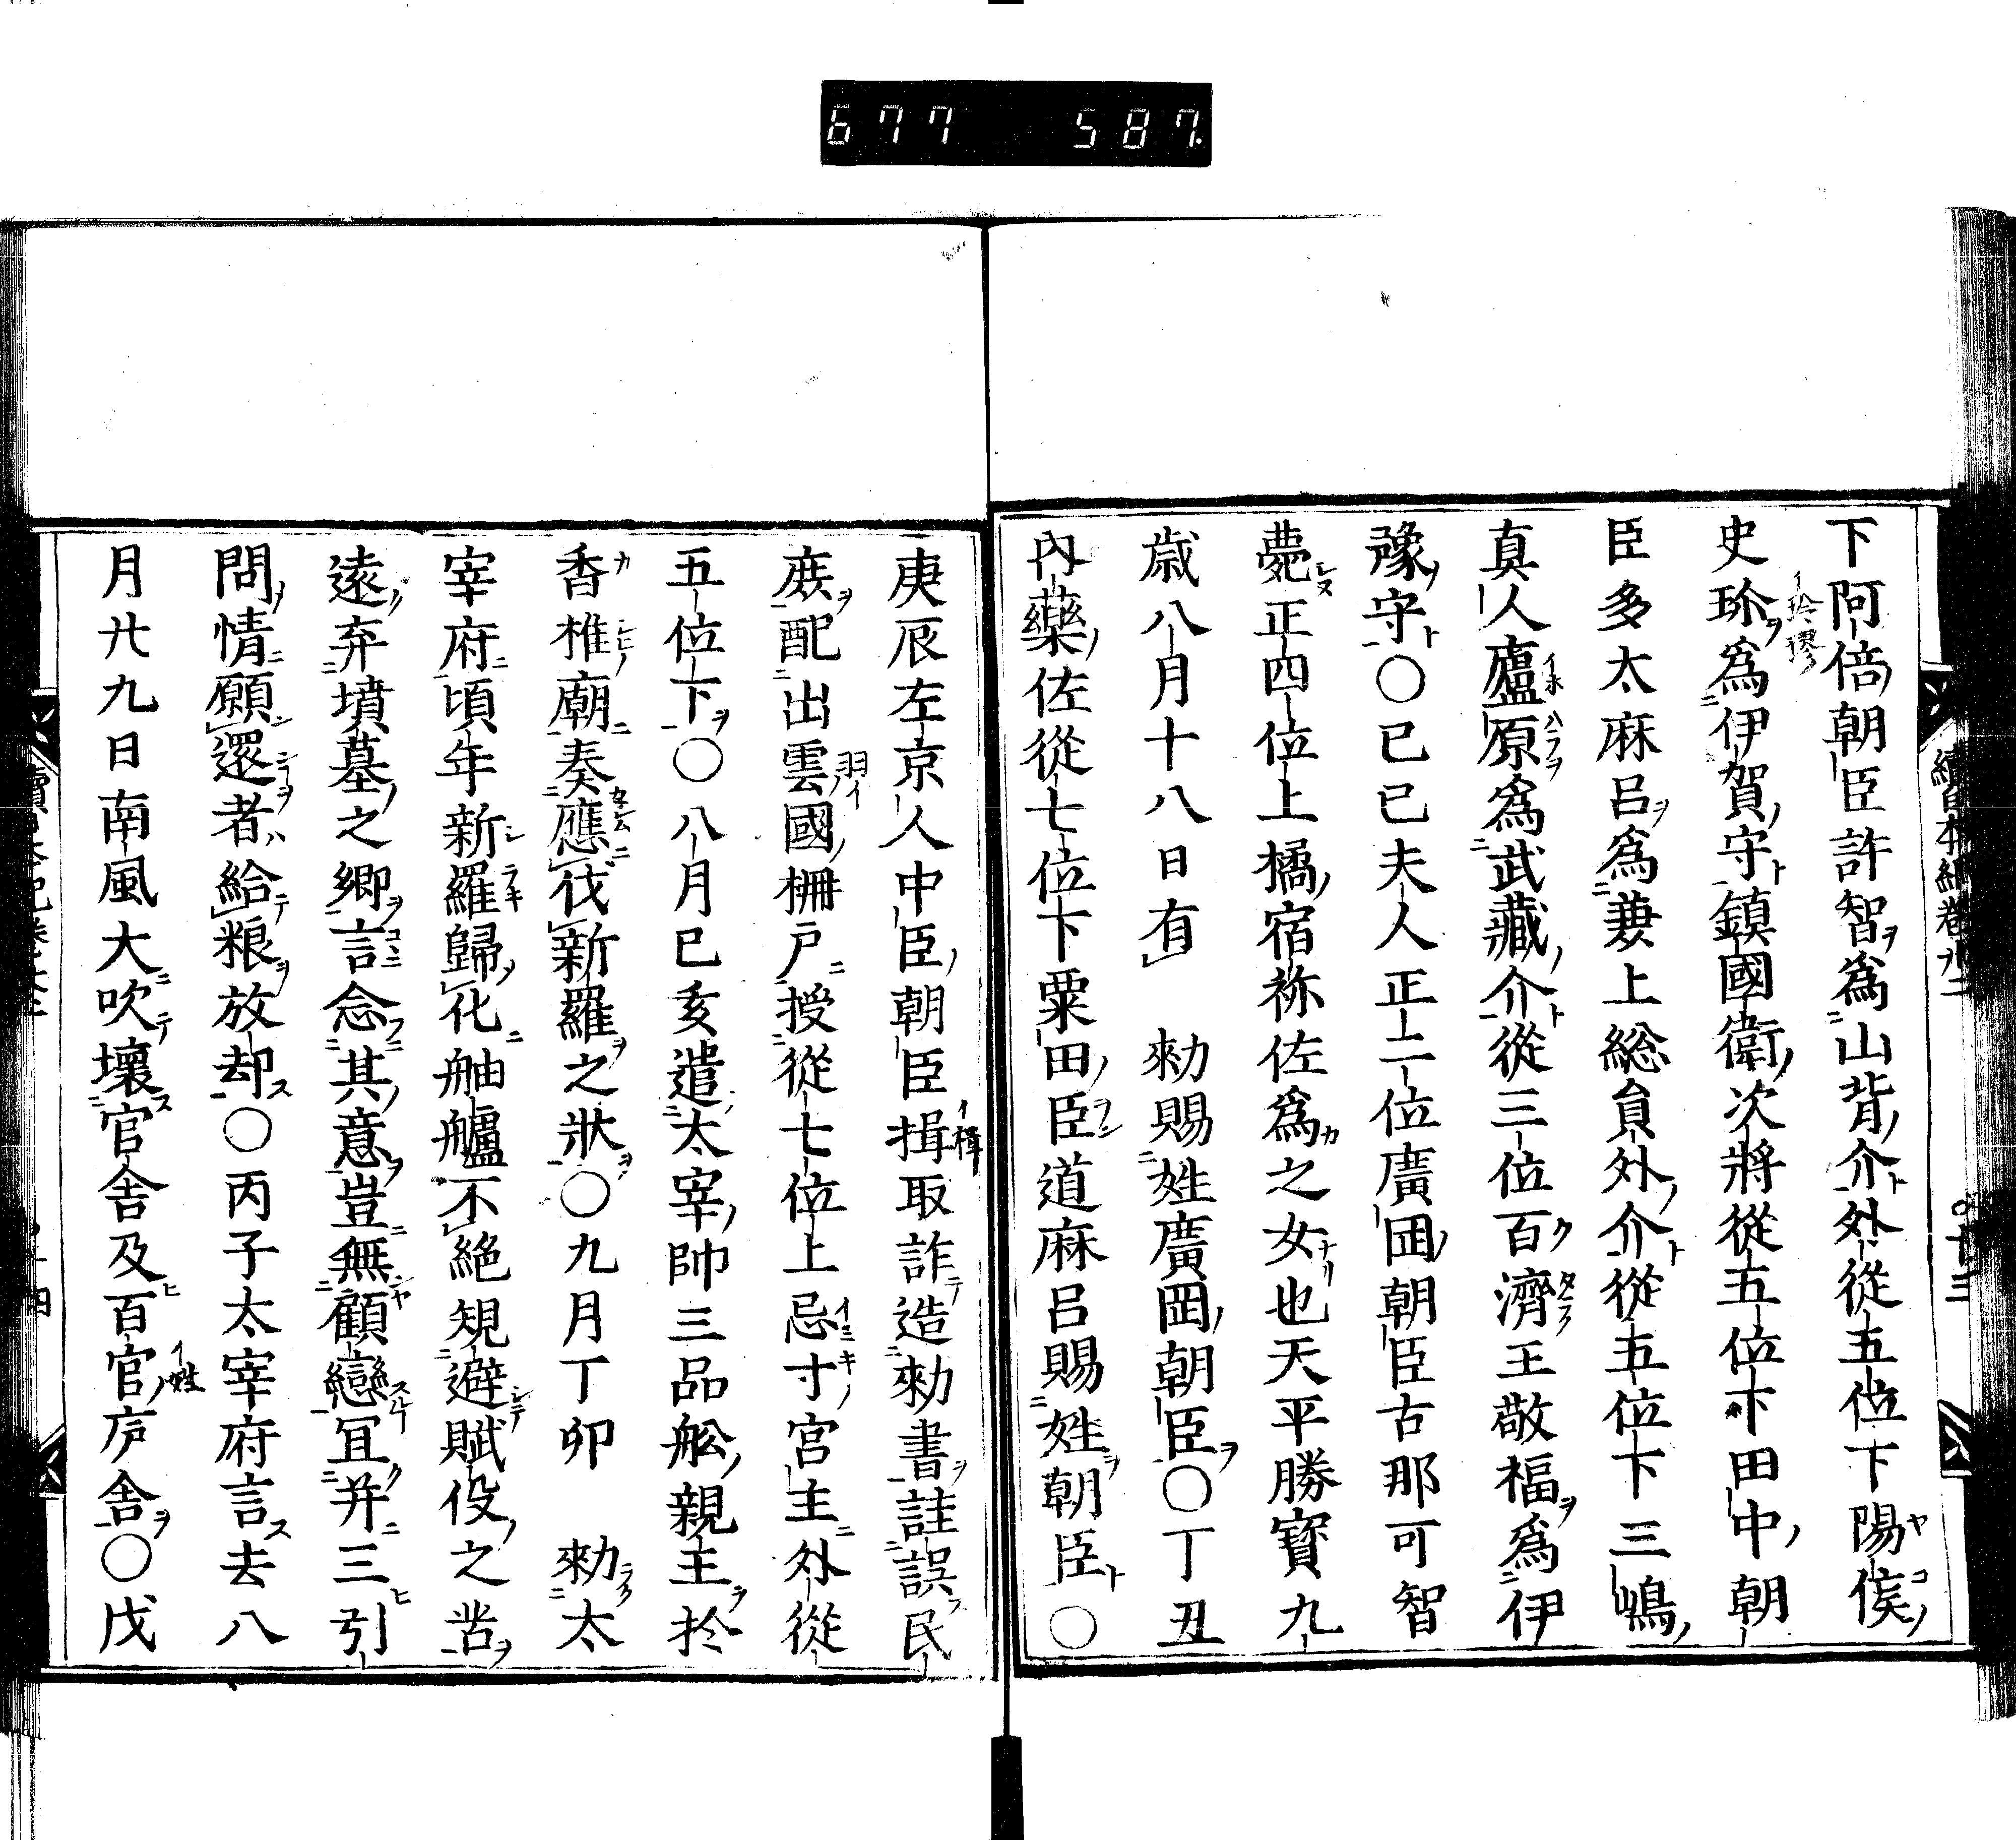 677 587.
下阿倍朝臣許智爲山背介外從五位下陽侯
史㺭爲伊賀守鎮國衛次將從五位下田中朝
臣多太麻呂爲兼上総員外介從五位下三嶋
真人廬原爲武藏介從三位百濟王敬福爲伊
豫守〇已已夫人正二位廣岡朝臣古那可智
薨正四位上橘宿祢佐爲之女也天平勝寳九
歳八月十八日有 勑賜姓廣岡朝臣〇丁丑
內藥佐從七位下粟田臣道麻呂賜姓朝臣〇
庚辰左京人中臣朝臣揖取詐造勑書詿誤民
庶配出雲國柵戸授從七位上忌寸宮主外從
五位下〇八月已亥遣太宰帥三品舩親王於
香椎廟奏應伐新羅之狀〇九月丁卯 勑太
宰府頃年新羅歸化舳艫不絶規避賦役之苦
遠弃墳墓之鄉言念其意豈無顧戀冝并三引
問情願還者給粮放却〇丙子太宰府言去八
月廿九日南風大吹壞官舍及百官庐舍〇戊